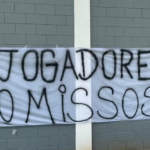 JOGADORE
OMISSOS